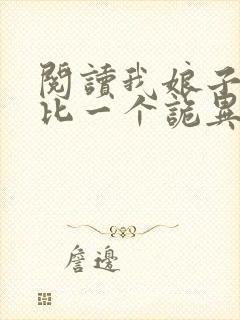 閱讀我娘子
比一个詭異
詹邊